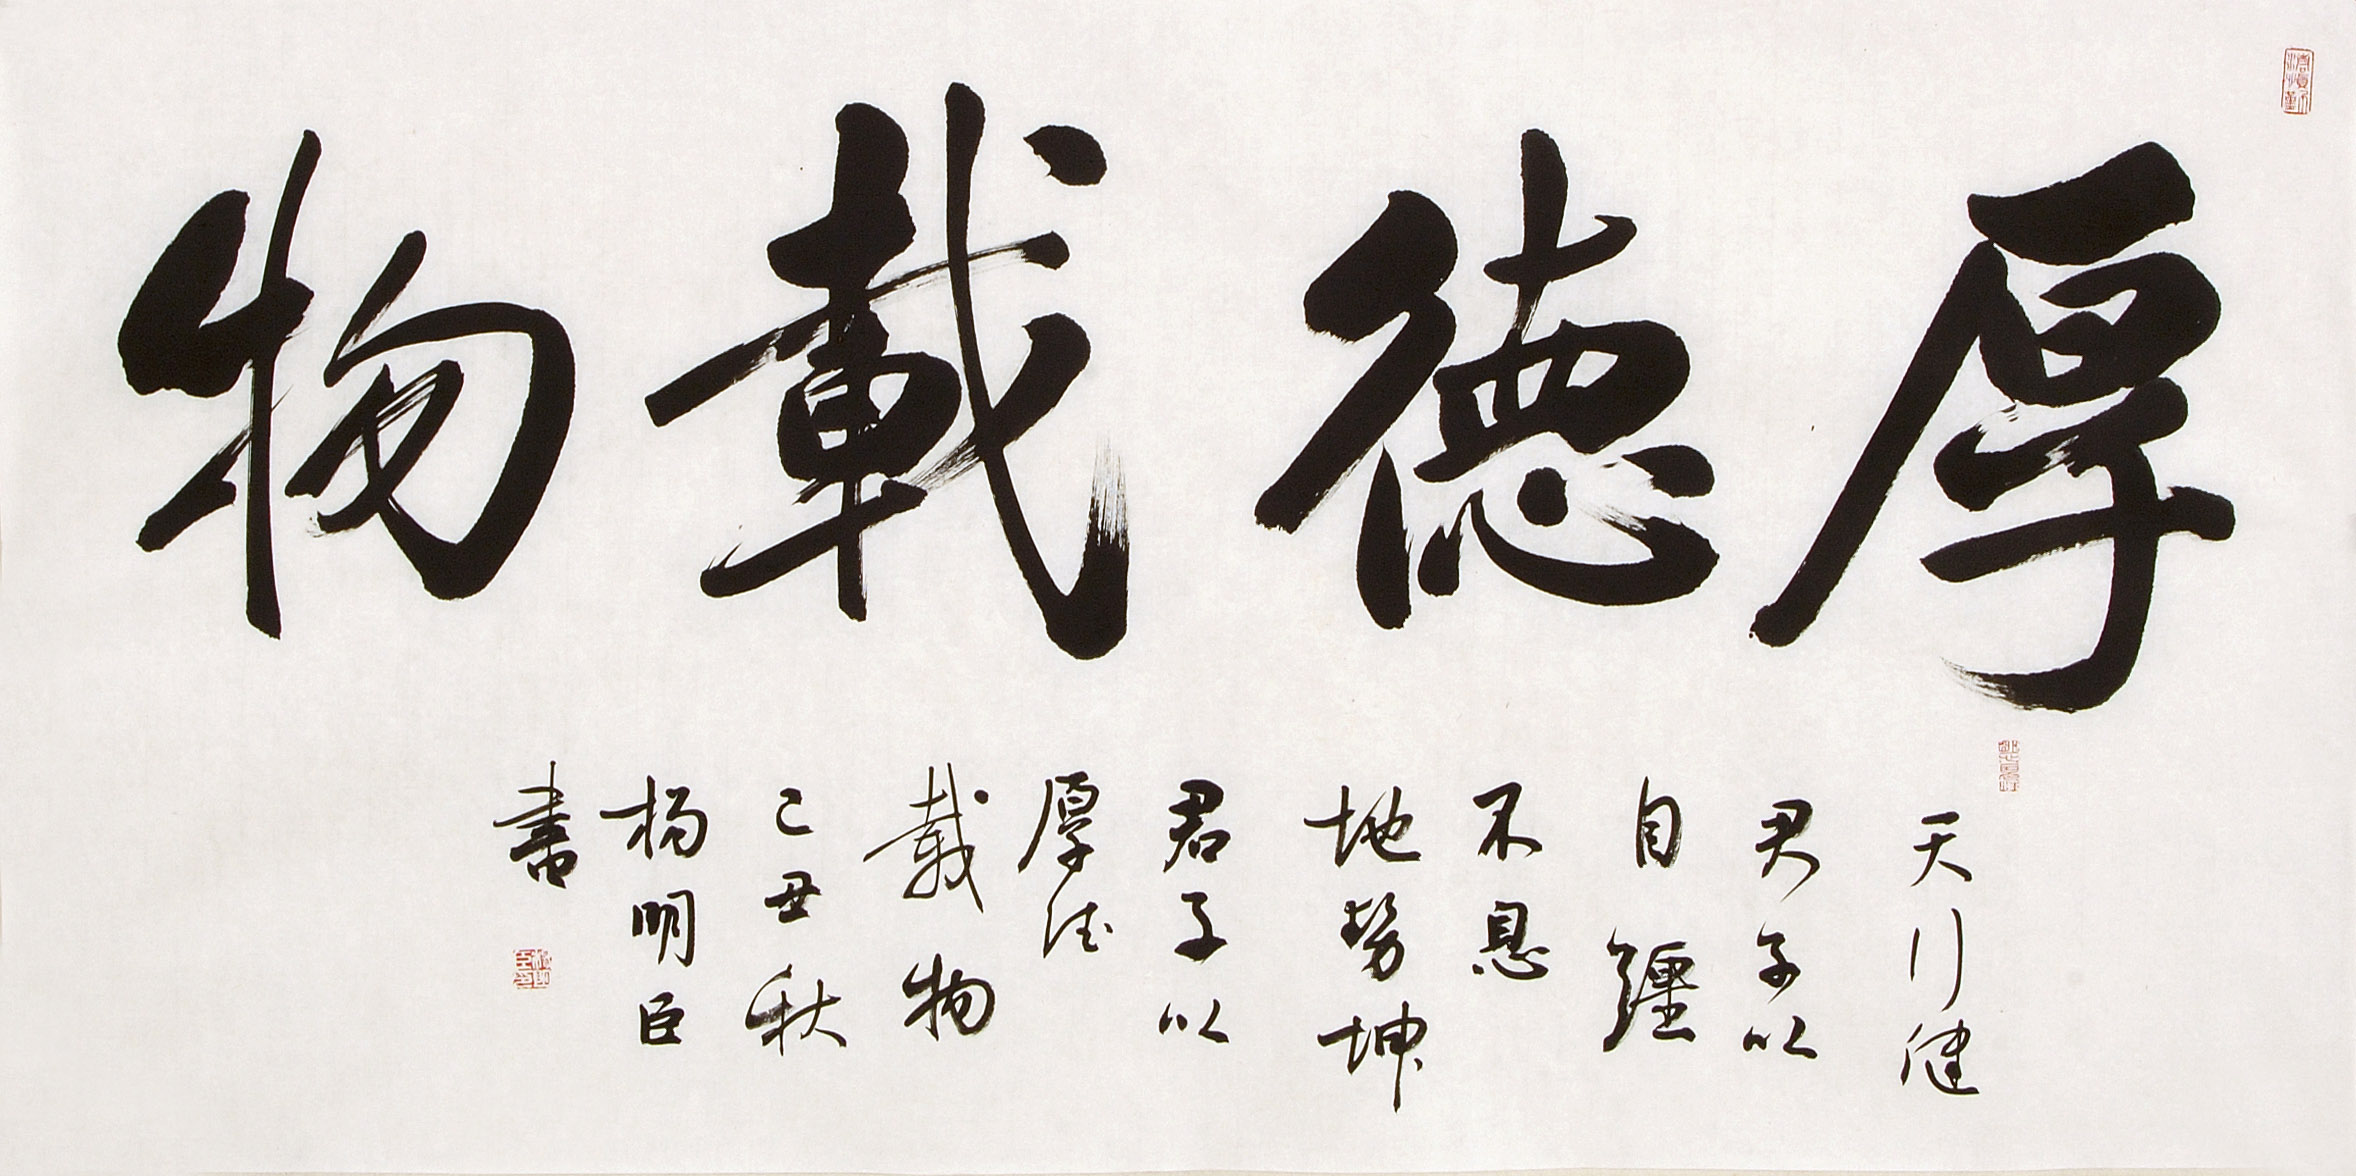 厚德載物
天行健
君子以
自彊
不息
地勢坤
君子以
厚德
載物
己丑秋
杨明臣
書